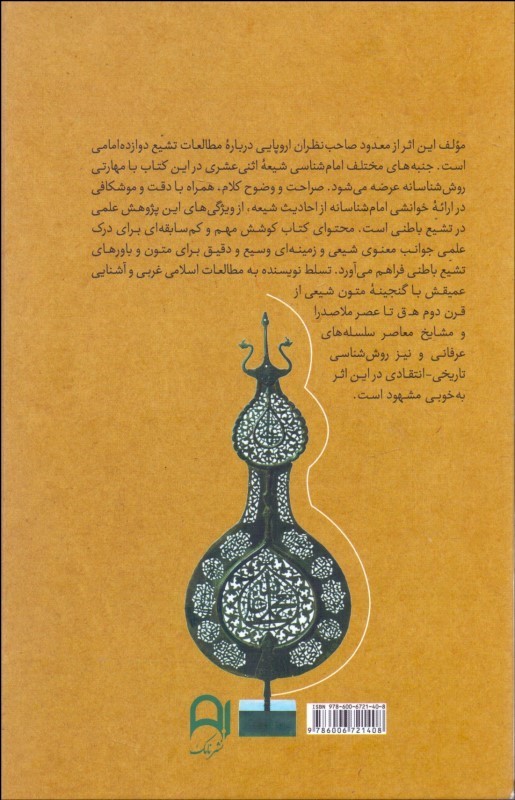 مؤلف این اثر از معدود صاحب‌نظران اروپایی دربارهٔ مطالعات تشیّع دوازده‌امامی
است. جنبه‌های مختلف امام‌شناسی شیعهٔ اثنی‌عشری در این کتاب با مهارتی
روش‌شناسانه عرضه می‌شود. صراحت و وضوح کلام، همراه با دقت و موشکافی
در ارائهٔ خوانشی امام‌شناسانه از احادیث شیعه، از ویژگی‌های این پژوهش علمی
در تشیّع باطنی است. محتوای کتاب کوشش مهم و کم‌سابقه‌ای برای درک
علمی جوانب معنوی شیعی و زمینه‌ای وسیع و دقیق برای متون و باورهای
تشیّع باطنی فراهم می‌آورد. تسلط نویسنده به مطالعات اسلامی غربی و آشنایی
عمیقش با گنجینهٔ متون شیعی از
قرن دوم ه‍.ق تا عصر ملاصدرا
و مشایخ معاصر سلسله‌های
عرفانی و نیز روش‌شناسی
تاریخی-انتقادی در این اثر
به‌خوبی مشهود است.
ISBN 978-600-6721-40-8
9 786006 721408
نشر نامک